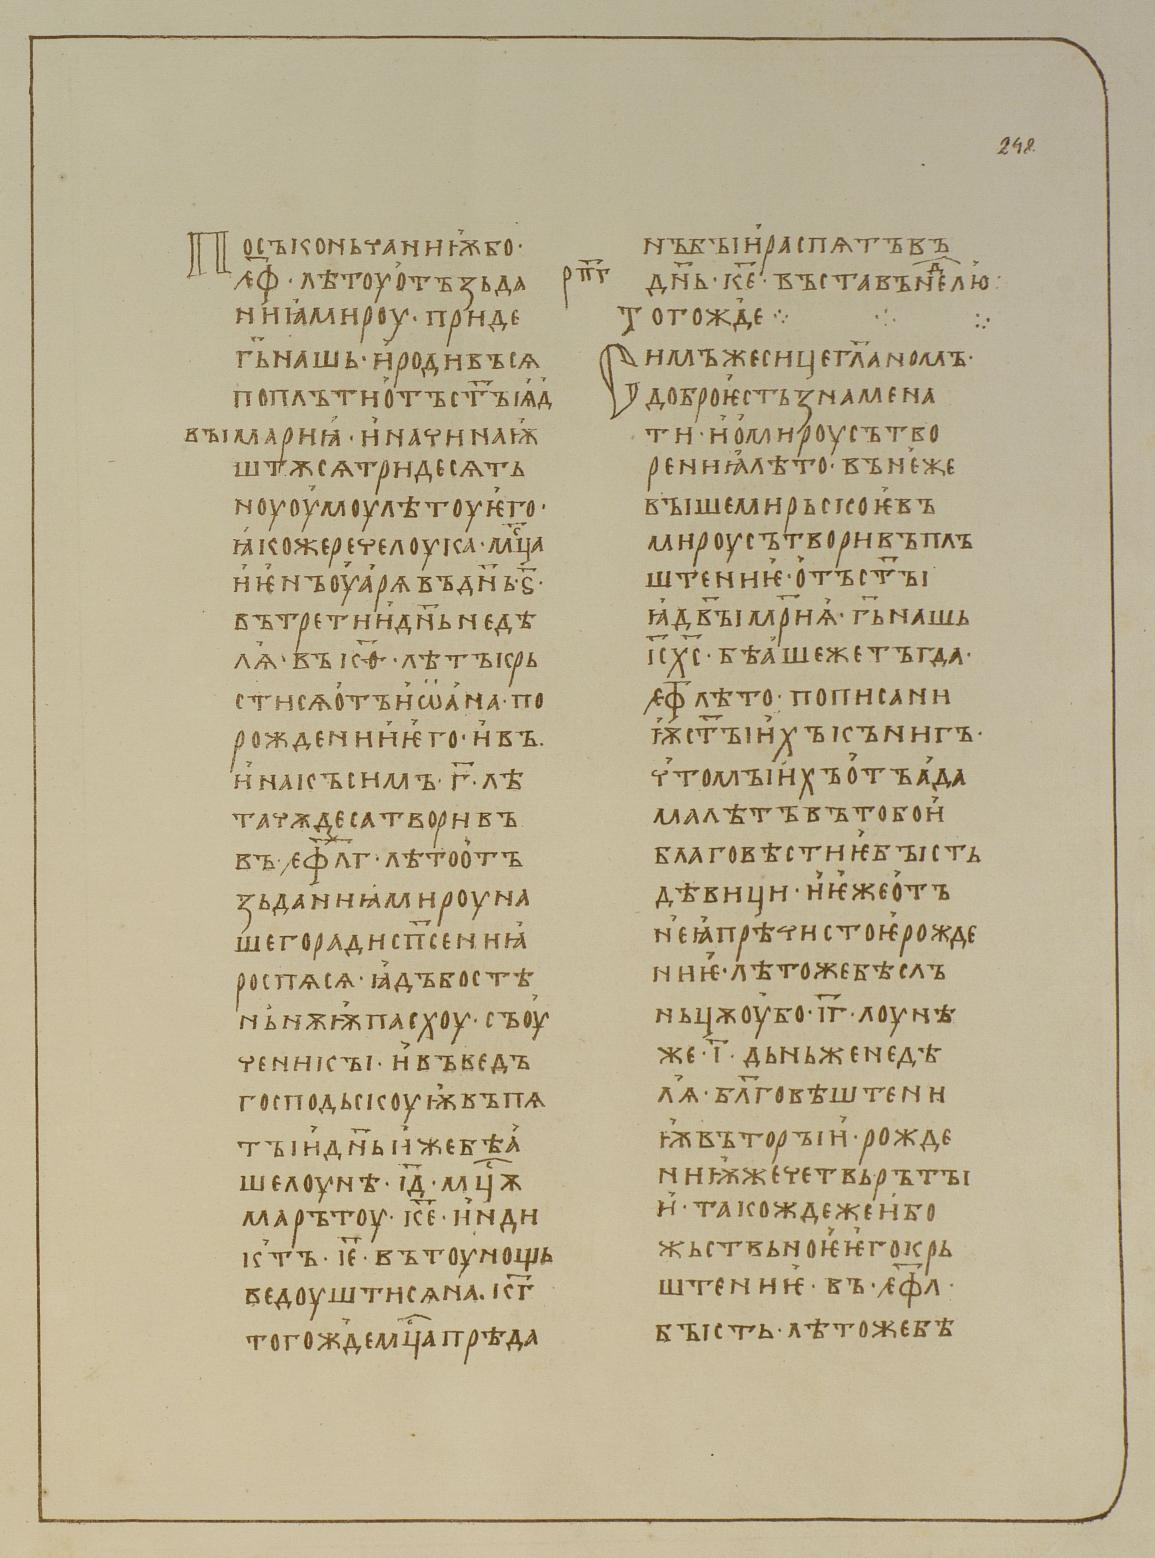 248
Посъконьчаниѭбо·
҂е҃ф·лѣтоуотъзьда
ниꙗмироу·приде
гь҃нашь·иродивъсѧ
поплътиотъст҃ъіѩд
въімариѩ·иначинаѭ
штѫсѧтридесѧть
ноуоумоулѣтоуѥго·
ꙗкожеречелоука·мц҃а
иѥнъоуарѧвъдн҃ь·ѕ҃·
вътретиидн҃ьнедѣ
лѧ·въкѳ҃·лѣтъкрь
стисѧотъиѡана·по
рождениіѥго·ивъ.
инакъсимъ·г҃·лѣ
тачѫдесатворивъ
въ·҂еф҃лг·лѣтоотъ
зьданиꙗмироуна
шегорадисп҃сениꙗ
роспѧсѧ·ꙗдъвостѣ
ньнѫѭпасхоу·съоу
ченикъі·ивъведъ
господьскоуѭвъпѧ
тъіидн҃ьижебѣа
шелоунѣ·ід҃·мц҃ѫ
марътоу·ке҃·инди
кта·іе҃·вътоунощь
ведоуштисѧна.кг҃
тогождемц҃апрѣда
нъбъіираспѧтъвъ
рп҃г
дн҃ь·ке҃·въставъне҃лю
тогожде
Симъжесицегл҃аномъ·
доброѥстьзнамена
ти·иомироусътво
рениꙗлѣто·вънеже
въішемирьскоѥвъ
мироусътворивъплъ
штениѥ·отъст҃ъі
ꙗдв҃ъімр҃иѧ·гь҃нашь
іс҃хс҃·бѣашежетъгда·
҂еф҃лѣто·пописани
ѭст҃ъіихъкънигъ·
чтомъіихъотъада
малѣтъвътобои
благовѣстиѥбъість
дѣвици·иѥжеотъ
неѩпрѣчистоѥрожде
ниѥ·лѣтожебѣслъ
ньцѫоубо·іг҃·лоунѣ
же·і҃·дьньженедѣ
лѧ·бл҃говѣштени
ѭвъторъіи·рожде
ниѭжечетвьрътъі
и·такождежеибо
жьствьноѥѥгокрь
штениѥ·въ·҂еф҃л·
бъість·лѣтожебѣ